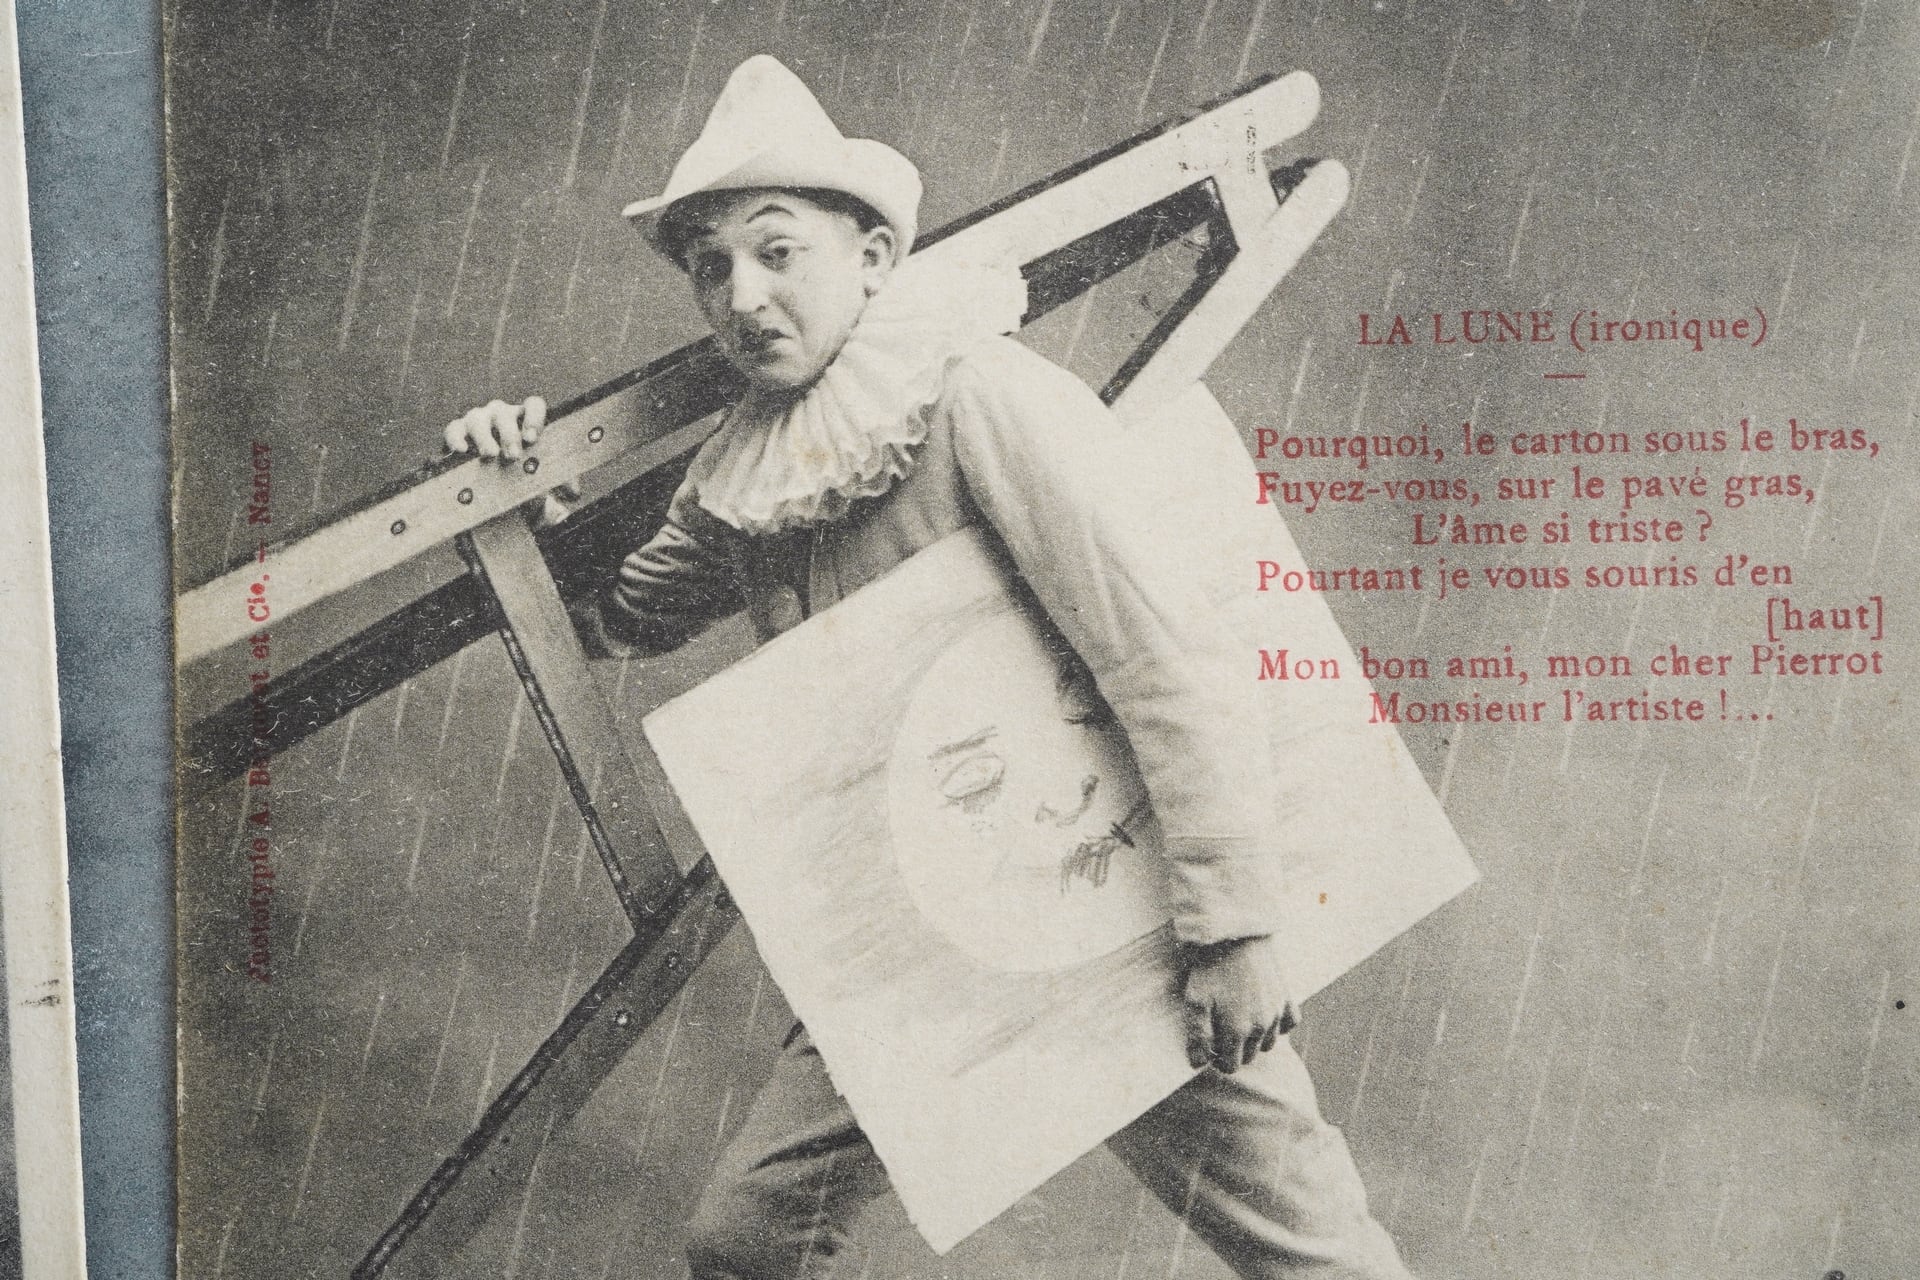 LA LUNE (ironique)
Pourquoi, le carton sous le bras,
Fuyez-vous, sur le pavé gras,
L'âme si triste ?
Pourtant je vous souris d'en
[haut]
Mon bon ami, mon cher Pierrot
Monsieur l'artiste !...
Phototypie A. Bergeret et Cie. — Nancy